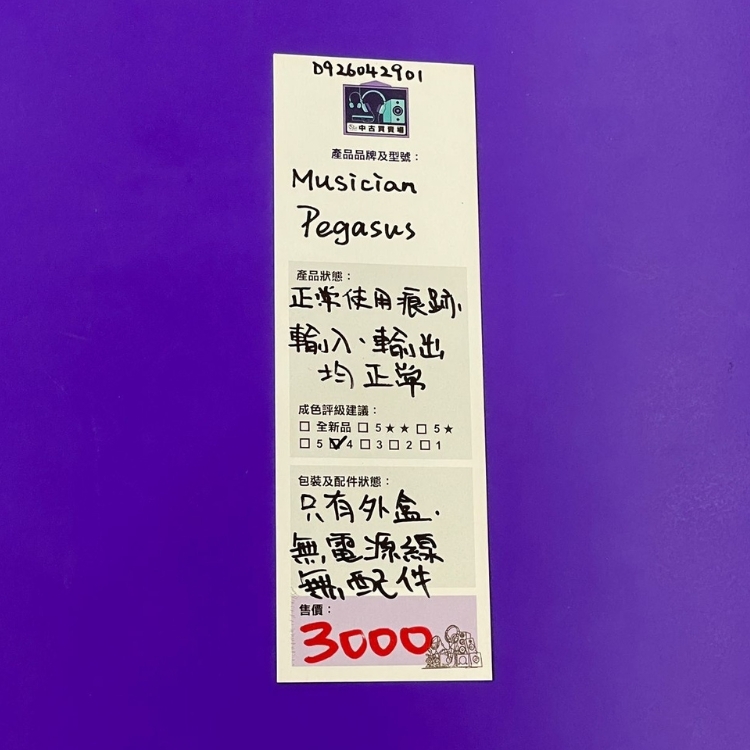 D926042901
中古買賣場
產品品牌及型號：
Musician
Pegasus
產品狀態：
正常使用痕跡，
輸入、輸出
均正常
成色評級建議：
□ 全新品 □ 5★★ □ 5★
□ 5 ☑ 4 □ 3 □ 2 □ 1
包裝及配件狀態：
只有外盒．
無電源線
無配件
售價：
3000